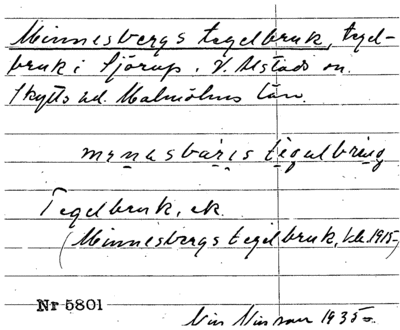 Minnesbergs tegelbruk, tegel-
bruk i Sjörup. V. Ustads sn.
Skytts hd. Malmöhus län.
menasbäris tégalbring
Tegelbruk, ek.
(Minnesbergs tegelbruk, bl. 1915-)
Nr 5801
1935